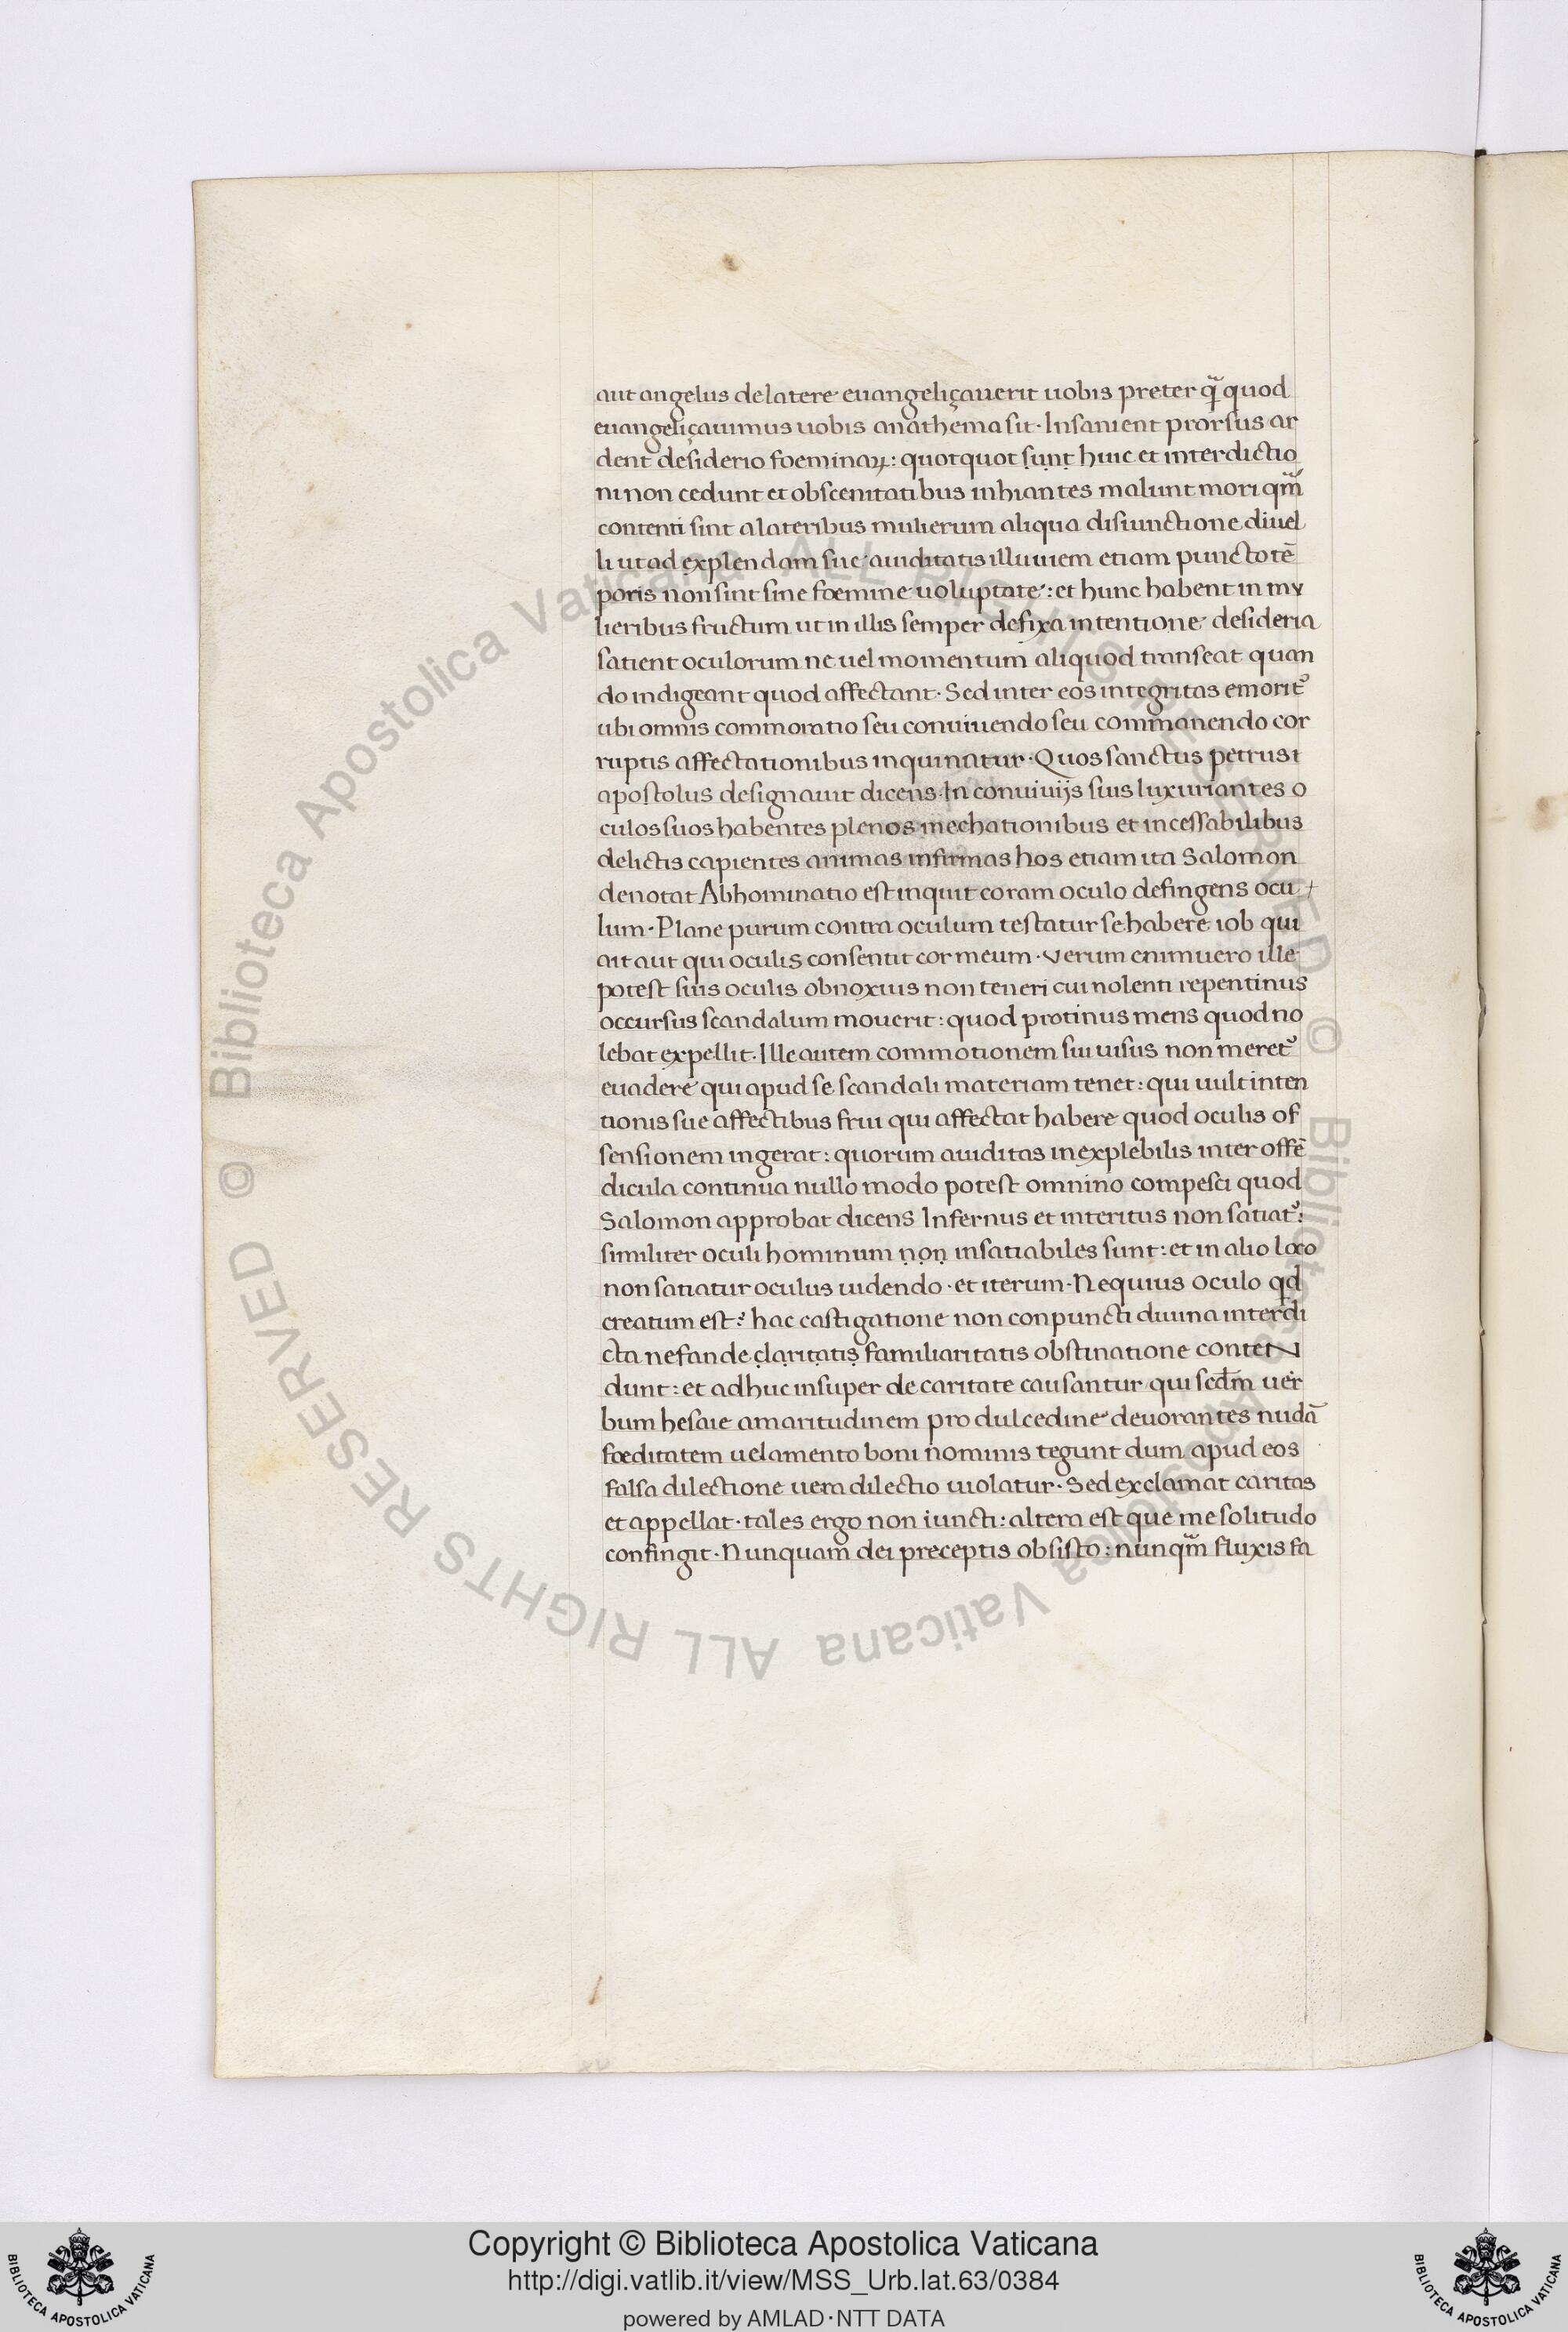 aut angelus de latere euangeliçauerit uobis preter q̃ quod
euangeliçauimus uobis anathema sit · Insanient prorsus ar
dent desiderio foeminaꝝ : quotquot ṣụṇṭ huic et interdictio
ni non cedunt et obscenitatibus inhiantes malunt mori qm̃
contenti sint a lateribus mulierum aliqua disiunctione diuel
li ut ad explendam sue auiditatis illuuiem etiam puncto tē
poris non sint sine foemine uoluptate : et hunc habent in my
lieribus fructum ut in illis semper defixa intentione desideria
satient oculorum ne uel momentum aliquod transeat quan
do indigeant quod affectant · Sed inter eos integritas emorit᷒
ubi omnis commoratio seu conuiuendo seu commanendo cor
ruptis affectationibus inquinatur · Quos sanctus petrus ı
apostolus designauit dicens · In conuiuijs suis luxuriantes o
culos suos habentes plenos mechationibus et incessabilibus
delictis capientes animas infirmas hos etiam ita Salomon
denotat Abhominatio est inquit coram oculo defingens ocu +
lum · Plane purum contra oculum testatur se habere iob qui
ait aut qui oculis consentit cor meum · Verum enimuero ille
potest suis oculis obnoxius non teneri cui nolenti repentinus
occursus scandalum mouerit : quod protinus mens quod no
lebat expellit · Ille autem commotionem sui uisus non meret᷒
euadere qui apud se scandali materiam tenet : qui uult inten
tionis sue affectibus frui qui affectat habere quod oculis of
fensionem ingerat : quorum auiditas inexplebilis inter offē
dicula continua nullo modo potest omnino compesci quod
Salomon approbat dicens Infernus et interitus non satiat᷒ :
similiter oculi hominum ṇọṇ insatiabiles sunt : et in alio loco
non satiatur oculus uidendo · et iterum · Nequius oculo qd
creatum est ? hac castigatione non conpuncti diuina interdi
cta nefande c̣ḷạṛịṭạṭịṣ familiaritatis obstinatione conteN
dunt : et adhuc insuper de caritate causantur qui scd̄m uer
bum hesaie amaritudinem pro dulcedine deuorantes nudā
foeditatem uelamento boni nominis tegunt dum apud eos
falsa dilectione uera dilectio uiolatur · Sed exclamat caritas
et appellat · tales ergo non iuncti : altera est que me solitudo
confingit · Nunquam dei preceptis obsisto : nunqm̃ fluxis fa
© Biblioteca Apostolica Vaticana ALL RIGHTS RESERVED
© Biblioteca Apostolica Vaticana ALL RIGHTS RESERVED
Copyright © Biblioteca Apostolica Vaticana
http://digi.vatlib.it/view/MSS_Urb.lat.63/0384
powered by AMLAD·NTT DATA
BIBLIOTECA APOSTOLICA VATICANA
BIBLIOTECA APOSTOLICA VATICANA